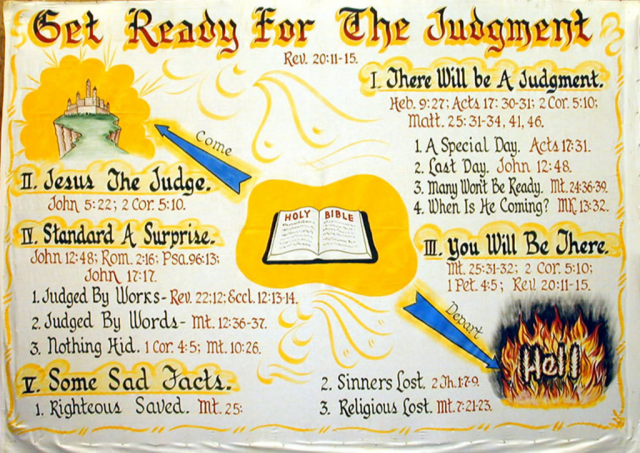 Get Ready For The Judgment
Rev. 20:11-15.
I. There Will be A Judgment.
Heb. 9:27; Acts 17:30-31; 2 Cor. 5:10;
Matt. 25:31-34, 41, 46.
1. A Special Day. Acts 17:31.
2. Last Day. John 12:48.
3. Many Won't Be Ready. Mt. 24:36-39.
4. When Is He Coming? MK. 13:32.
Come
II. Jesus The Judge.
John 5:22; 2 Cor. 5:10.
HOLY BIBLE
III. You Will Be There.
Mt. 25:31-32; 2 Cor. 5:10;
1 Pet. 4:5; Rev. 20:11-15.
IV. Standard A Surprise.
John 12:48; Rom. 2:16; Psa. 96:13;
John 17:17.
1. Judged By Works- Rev. 22:12; Eccl. 12:13-14.
2. Judged By Words- Mt. 12:36-37.
3. Nothing Hid. 1 Cor. 4:5; Mt. 10:26.
Depart
Hell
V. Some Sad Facts.
1. Righteous Saved. Mt. 25:
2. Sinners Lost. 2 Th. 1:7-9.
3. Religious Lost. Mt. 7:21-23.